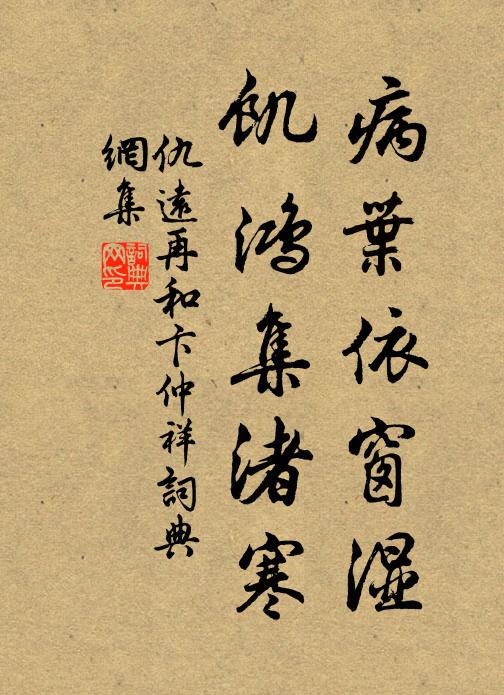 病葉依窗濕
飢鴻集渚寒
仇遠再和卞仲祥詞典
網集
詞典
网印